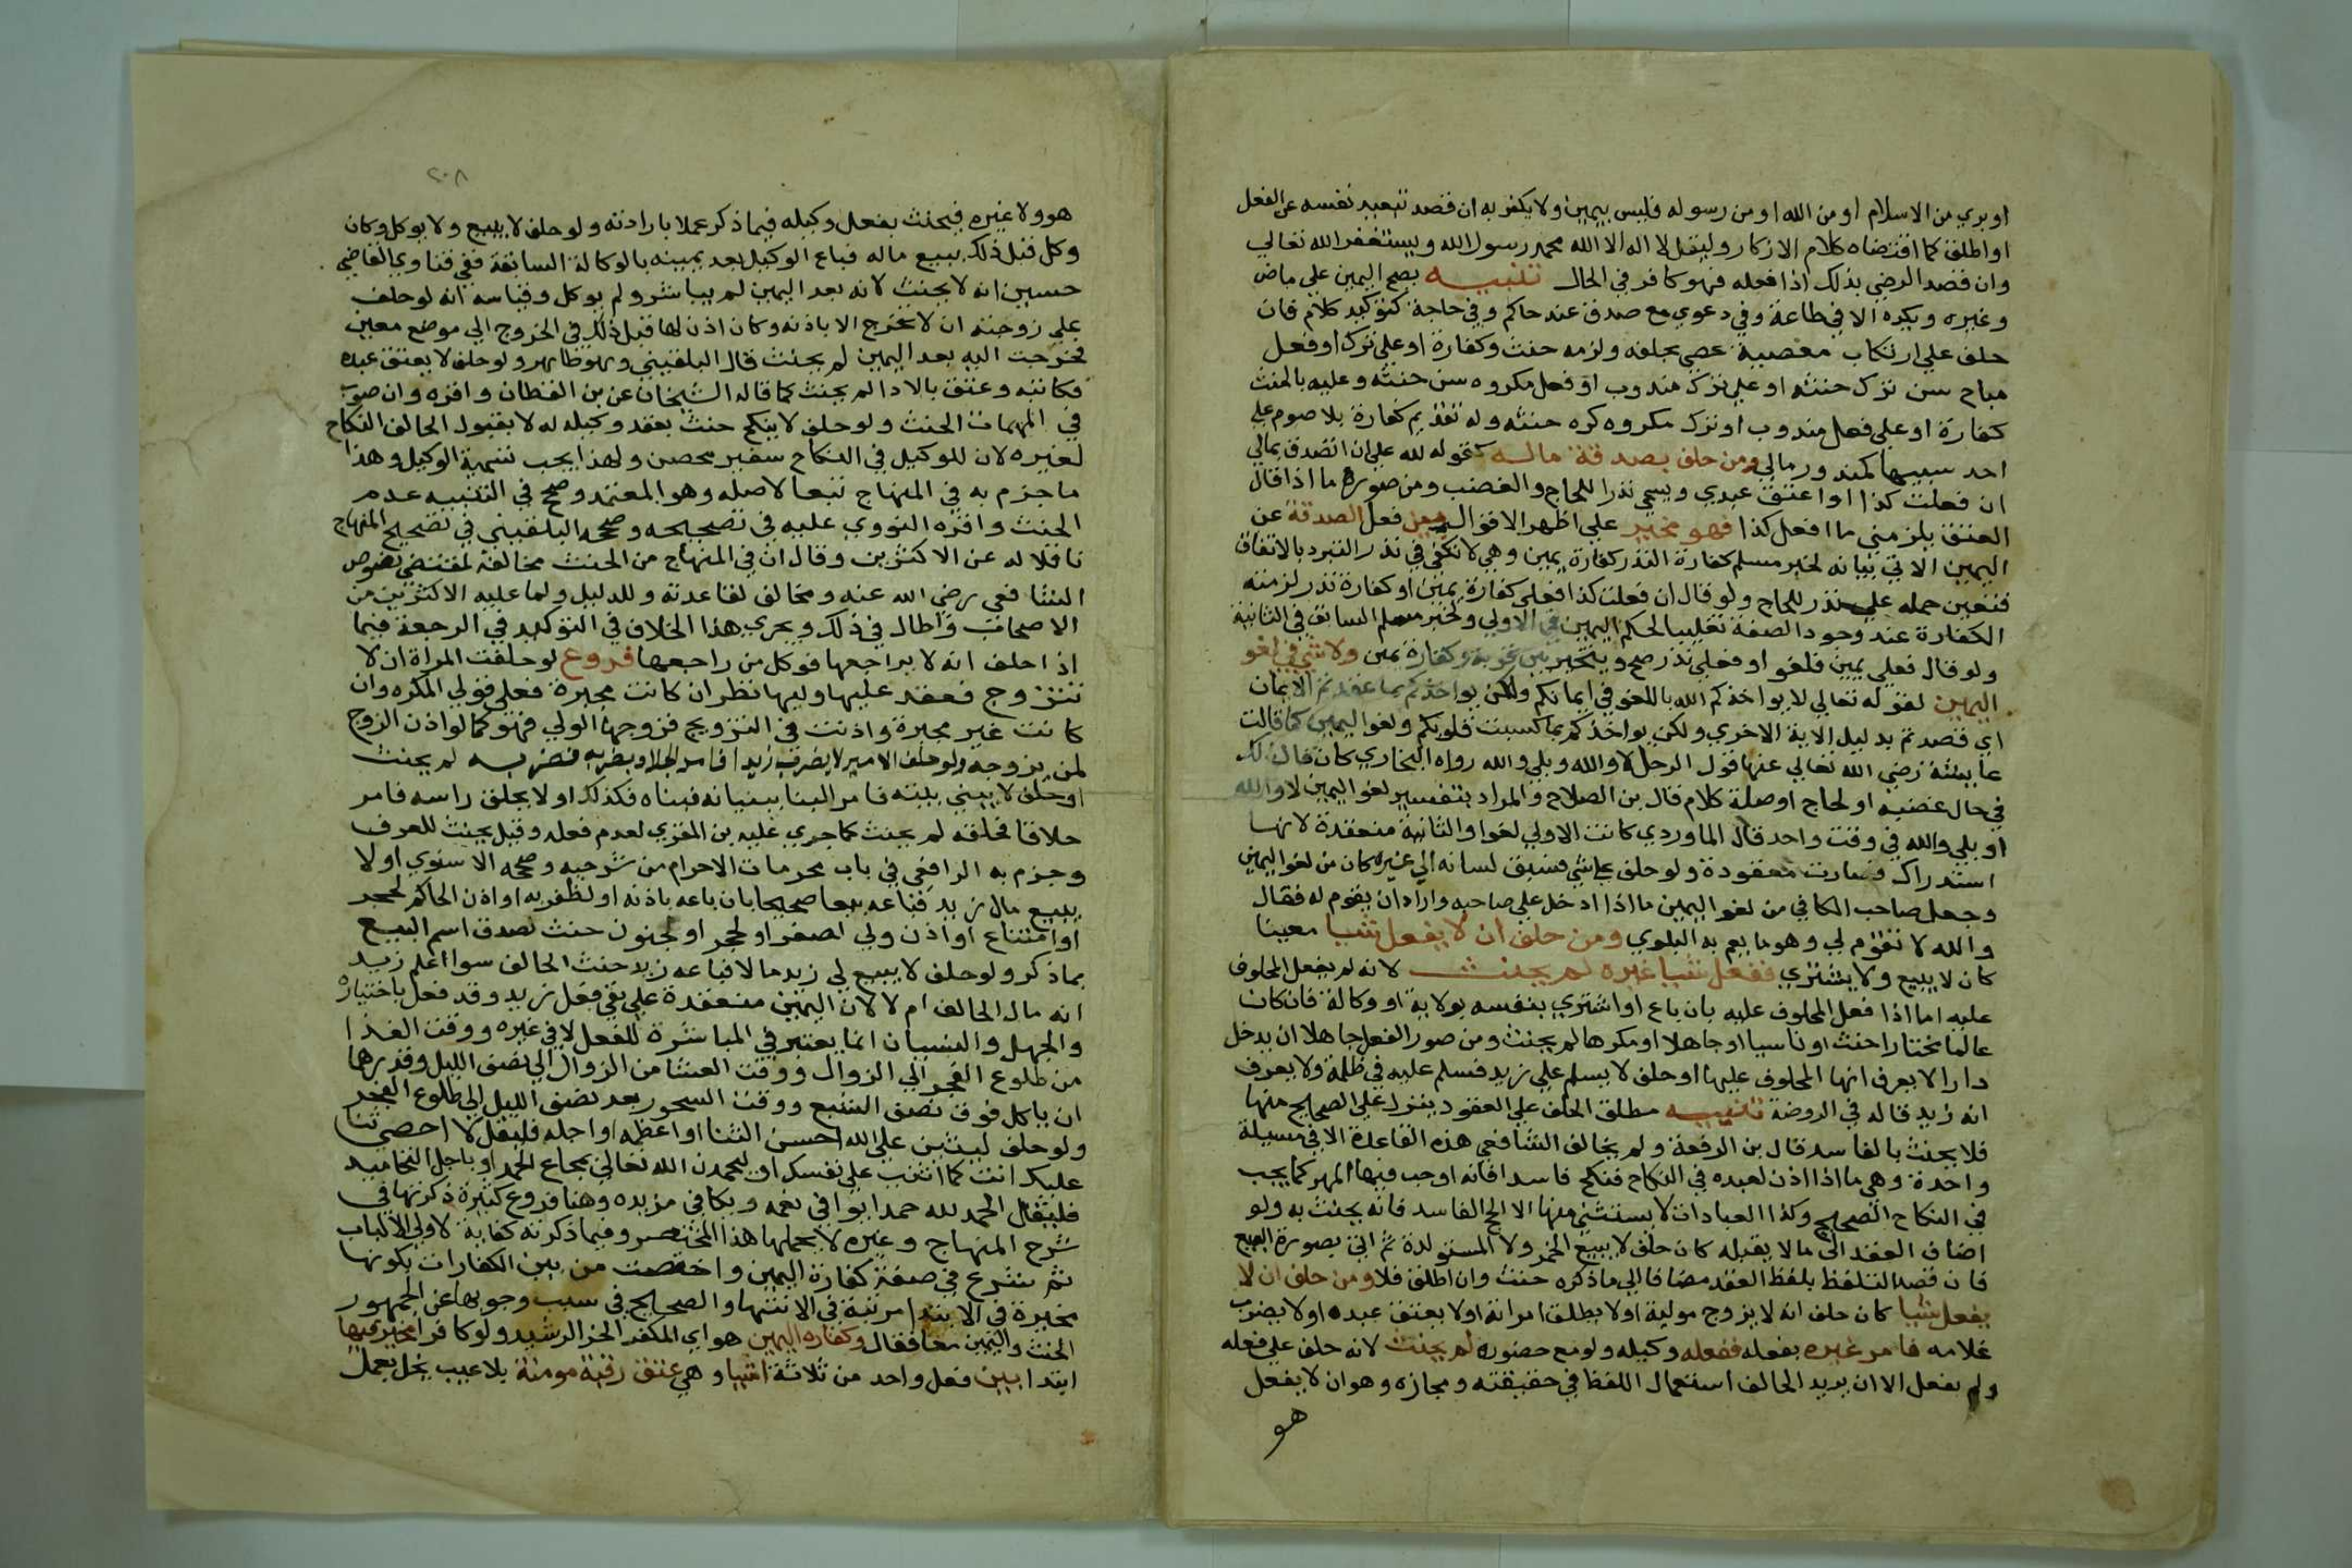 او بري من الاسلام او من الله او من رسوله فليس بيمين ولا يكفر به ان قصد تبعيد نفسه عن الفعل
او اطلق كما اقتضاه كلام الاذكار وليقل لا اله الا الله محمد رسول الله ويستغفر الله تعالي
وان قصد الرضي بذلك اذا فعله فهو كافر في الحال تنبيه يصح اليمين علي ماض
وغيره ويكره الا في طاعة وفي دعوي مع صدق عند حاكم وفي حاجة كتوكيد كلام فان
حلف علي ارتكاب معصية عصي بحلفه ولزمه حنث وكفارة او علي ترك او فعل
مباح سن ترك حنثه او علي ترك مندوب او فعل مكروه سن حنثه وعليه بالحنث
كفارة او علي فعل مندوب او ترك مكروه كره حنثه وله تقديم كفارة بلا صوم علي
احد سببيها كمنذور مالي ومن حلف بصدقة ماله كقوله لله علي ان اتصدق بمالي
ان فعلت كذا او اعتق عبدي ويسمي نذر اللجاج والغضب ومن صوره ما اذا قال
العتق يلزمني ما افعل كذا فهو مخير علي اظهر الاقوال بين فعل الصدقة عن
اليمين الاتي بيانه لخبر مسلم كفارة النذر كفارة يمين وهي لا تكفي في نذر التبرر بالاتفاق
فتعين حمله علي نذر اللجاج ولو قال ان فعلت كذا فعلي كفارة يمين او كفارة نذر لزمته
الكفارة عند وجود الصفة تغليبا لحكم اليمين في الاولي ولخبر مسلم السابق في الثانية
ولو قال فعلي يمين فلغو او فعلي نذر صح ويتخير بين قربة وكفارة يمين ولا شي في لغو
اليمين لقوله تعالي لا يواخذكم الله باللغو في ايمانكم ولكن يواخذكم بما عقدتم الايمان
اي قصدتم بدليل الاية الاخري ولكن يواخذكم بما كسبت قلوبكم ولغو اليمين كما قالت
عايشة رضي الله تعالي عنها قول الرجل لا والله وبلي والله رواه البخاري كان قال ذلك
في حال غضبه او لجاج او صلة كلام قال بن الصلاح والمراد بتفسير لغو اليمين لا والله
او بلي والله في وقت واحد قال الماوردي كانت الاولي لغوا والثانية منعقدة لانها
استدراك فصارت معقودة ولو حلف علي شي فسبق لسانه الي غيره كان من لغو اليمين
وجعل صاحب الكافي من لغو اليمين ما اذا دخل علي صاحبه واراد ان يقوم له فقال
والله لا تقوم لي وهو ما يعم به البلوي ومن حلف ان لا يفعل شيا معينا
كان لا يبيع ولا يشتري ففعل شيا غيره لم يحنث لانه لم يفعل المحلوف
عليه اما اذا فعل المحلوف عليه بان باع او اشتري بنفسه بولاية او وكالة فان كان
عالما مختارا حنث او ناسيا او جاهلا او مكرها لم يحنث ومن صور الفعل جاهلا ان يدخل
دارا لا يعرف انها المحلوف عليها او حلف لا يسلم علي زيد فسلم عليه في ظلمة ولا يعرف
انه زيد قاله في الروضة تنبيه مطلق الحلف علي العقود ينزل علي الصحيح منها
فلا يحنث بالفاسد قال بن الرفعة ولم يخالف الشافعي هذه القاعدة الا في مسيلة
واحدة وهي ما اذا اذن لعبده في النكاح فنكح فاسدا فانه اوجب فيها المهر كما يجب
في النكاح الصحيح وكذا العبادات لا يستثني منها الا الحج الفاسد فانه يحنث به ولو
اضاف العقد الي ما لا يقبله كان حلف لا يبيع الخمر ولا المستولدة ثم اتي بصورة البيع
فان قصد التلفظ بلفظ العقد مضافا الي ما ذكره حنث وان اطلق فلا ومن حلف ان لا
يفعل شيا كان حلف انه لا يزوج موليته او لا يطلق امراته او لا يعتق عبده او لا يضرب
غلامه فامر غيره بفعله ففعله وكيله ولو مع حضوره لم يحنث لانه حلف علي فعله
ولم يفعل الا ان يريد الحالف استعمال اللفظ في حقيقته ومجازه وهو ان لا يفعل
هو
٢٠٨
هو ولا غيره فيحنث بفعل وكيله فيما ذكر عملا بارادته ولو حلف لا يبيع ولا يوكل وكان
وكل قبل ذلك ببيع ماله فباع الوكيل بعد يمينه بالوكالة السابقة ففي فتاوي القاضي
حسين انه لا يحنث لانه بعد اليمين لم يباشر ولم يوكل وقياسه انه لو حلف
علي زوجته ان لا تخرج الا باذنه وكان اذن لها قبل ذلك في الخروج الي موضع معين
فخرجت اليه بعد اليمين لم يحنث قال البلقيني وهو ظاهر ولو حلف لا يعتق عبده
فكاتبه وعتق بالادا لم يحنث كما قاله الشيخان عن بن القطان واقره وان صوب
في المهمات الحنث ولو حلف لا ينكح حنث بعقد وكيله له لا بقبول الحالف النكاح
لغيره لان الوكيل في النكاح سفير محصن ولهذا يجب تسمية الوكيل وهذا
ما جزم به في المنهاج تبعا لاصله وهو المعتمد وصحح في التنبيه عدم
الحنث واقره النووي عليه في تصحيحه وصححه البلقيني في تصحيح المنهاج
ناقلا له عن الاكثرين وقال ان في المنهاج من الحنث مخالف لمقتضي نصوص
الشافعي رضي الله عنه ومخالف لقاعدته وللدليل ولما عليه الاكثرين من
الاصحاب واطال في ذلك ويجري هذا الخلاف في التوكيد في الرجعة فيما
اذا حلف انه لا يراجعها فوكل من راجعها فروع لو حلفت المراة ان لا
تتزوج فعقد عليها وليها نظر ان كانت مجبرة فعلي قولي المكره وان
كانت غير مجبرة واذنت في التزويج فزوجها الولي فهو كما لو اذن الزوج
لمن يزوجه ولو حلف الامير لا يضرب زيدا فامر الجلاد بضربه فضربه لم يحنث
او حلف لا يبني بيته فامر البنا ببنيانه فبناه فكذلك او لا يحلق راسه فامر
حلاقا فحلقه لم يحنث كما جري عليه بن المقري لعدم فعله وقيل يحنث للعرف
وجزم به الرافعي في باب محرمات الاحرام من شرحيه وصححه الاسنوي او لا
يبيع مال زيد فباعه بيعا صحيحا بان باعه باذنه او لظفر به او اذن الحاكم لحجر
او امتناع او اذن ولي لصغر او لحجر او لجنون حنث لصدق اسم البيع
بما ذكر ولو حلف لا يبيع لي زيد مالا فباعه زيد حنث الحالف سوا اعلم زيد
انه مال الحالف ام لا لان اليمين منعقدة علي نفي فعل زيد وقد فعل باختياره
والجهل والنسيان انما يعتبر في المباشرة للفعل لا في غيره ووقت الغدا
من طلوع الفجر الي الزوال ووقت العشا من الزوال الي نصف الليل وقدرها
ان ياكل فوق نصف الشبع ووقت السحور بعد نصف الليل الي طلوع الفجر
ولو حلف ليثنين علي الله احسن الثنا او اعظمه او اجله فليقل لا احصي ثنا
عليك انت كما اثنيت علي نفسك او ليحمدن الله تعالي بمجامع الحمد او باجل التحاميد
فليقل الحمد لله حمدا يوافي نعمه ويكافي مزيده وهنا فروع كثيرة ذكرتها في
شرح المنهاج وغيره لا يحملها هذا المختصر وفيما ذكرته كفاية لاولي الالباب
ثم شرع في صفة كفارة اليمين واختصت من بين الكفارات بكونها
مخيرة في الابتدا مرتبة في الانتها والصحيح في سبب وجوبها عن الجمهور
الحنث واليمين معا فقال وكفارة اليمين هو اي المكفر الحر الرشيد ولو كافرا مخير فيها
ابتدا بين فعل واحد من ثلاثة اشيا وهي عتق رقبة مومنة بلا عيب يخل بعمل